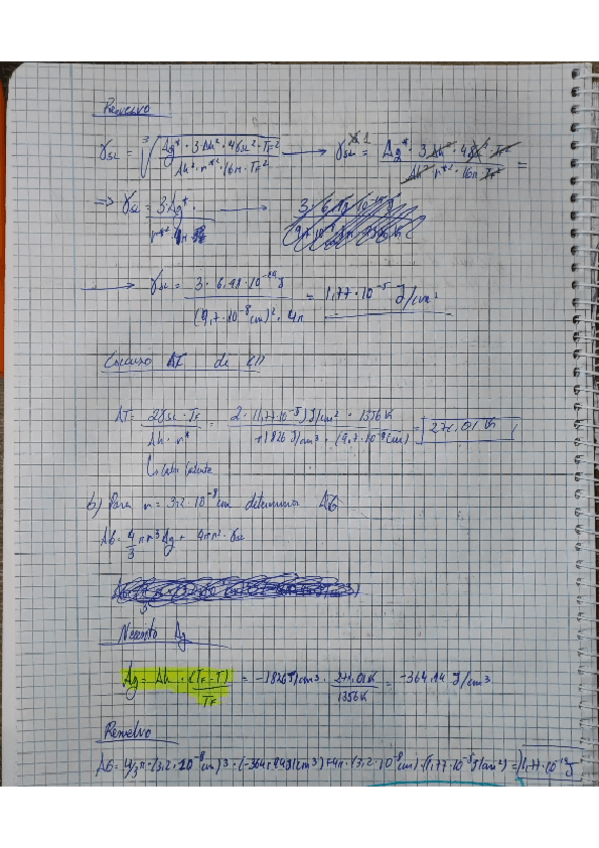 Resuelvo
γSL = ∛(Δg* · 3 · Δh² · 4γSL² · TF² / Δh² · r*² · 16π · TF²) → γSL = Δg* · 3 Δh² · 4γ² · TF² / Δh² r*² · 16π TF² =
=> γSL = 3 · Δg* / r*² · 4π →
→ γSL = 3 · 6,98 · 10⁻²⁰ J / (9,7 · 10⁻⁸ cm)² · 4π = 1,77 · 10⁻⁵ J/cm²
ΔT de
ΔT = 2γSL · TF / Δh · r* = 2 · (1,77 · 10⁻⁵) J/cm² · 1356 K / +1826 J/cm³ · (9,7 · 10⁻⁸ cm) = 271,01 K
Calor latente
b) Para r = 3,2 · 10⁻⁸ cm determina ΔG
ΔG = 4/3 πr³ Δg + 4πr² · γSL
Necesito Δg
Δg = Δh · (TF - T) / TF = -1826 J/cm³ · 271,01 K / 1356 K = -364,94 J/cm³
Resuelvo
ΔG = 4/3 π · (3,2 · 10⁻⁸ cm)³ · (-364,94 J/cm³) + 4π · (3,2 · 10⁻⁸ cm) · (1,77 · 10⁻⁵ J/cm²) =